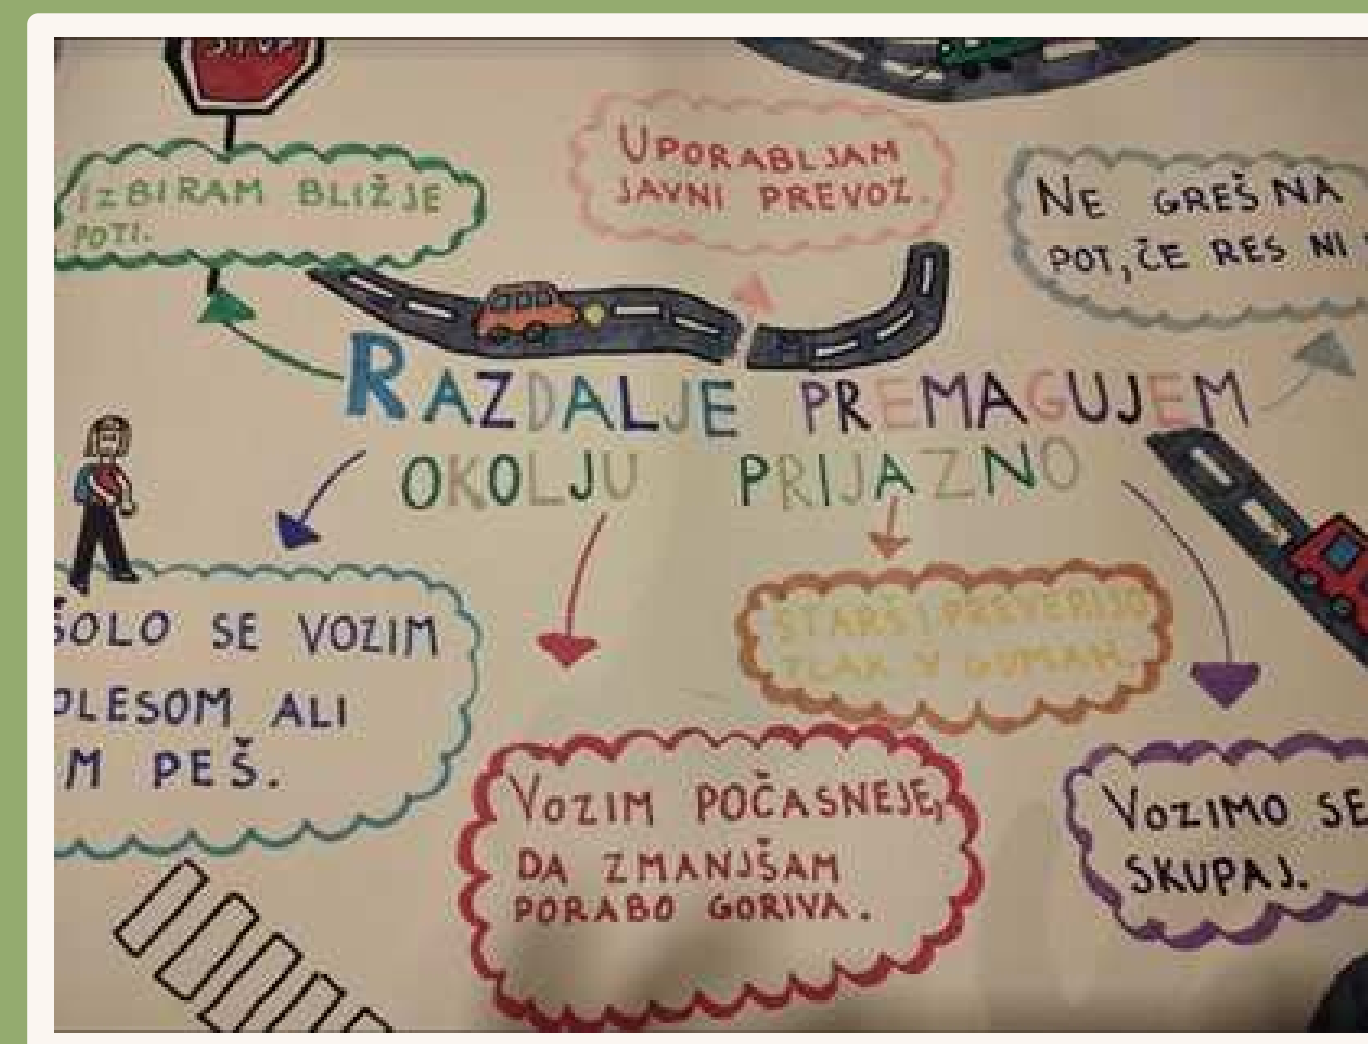 STOP
IZBIRAM BLIŽJE
POTI.
UPORABLJAM
JAVNI PREVOZ.
NE GREŠ NA
POT, ČE RES NI
RAZDALJE PREMAGUJEM
OKOLJU PRIJAZNO
ŠOLO SE VOZIM
OLESOM ALI
M PEŠ.
STARŠI PREVERIJO
TLAK V GUMAH.
VOZIM POČASNEJE,
DA ZMANJŠAM
PORABO GORIVA.
VOZIMO SE
SKUPAJ.